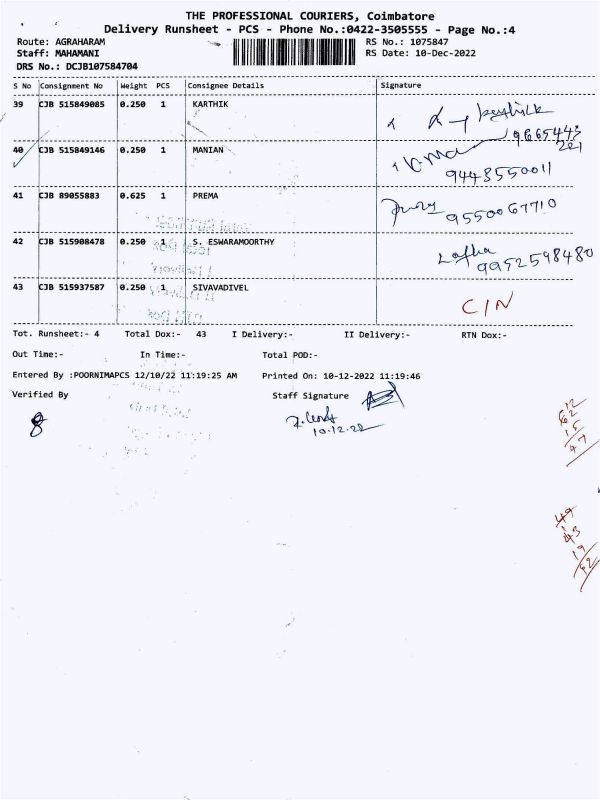 THE PROFESSIONAL COURIERS, Coimbatore
Delivery Runsheet - PCS - Phone No.:0422-3505555 - Page No.:4
Route: AGRAHARAM
RS No.: 1075847
Staff: MAHAMANI
RS Date: 10-Dec-2022
DRS No.: DCJB107584704
S No Consignment No Weight PCS Consignee Details Signature
39 CJB 515849085 0.250 1 KARTHIK
9665443
221
40 CJB 515849146 0.250 1 MANIAN
9448550011
41 CJB 89055883 0.625 1 PREMA
9550067710
42 CJB 515908478 0.250 1 S. ESWARAMOORTHY
Latha
9952598480
43 CJB 515937587 0.250 1 SIVAVADIVEL
C/N
Tot. Runsheet:- 4 Total Dox:- 43 I Delivery:- II Delivery:- RTN Dox:-
Out Time:- In Time:- Total POD:-
Entered By :POORNIMAPCS 12/10/22 11:19:25 AM Printed On: 10-12-2022 11:19:46
Verified By Staff Signature
8
10.12.22
12
62
15
47
49
43
19
62